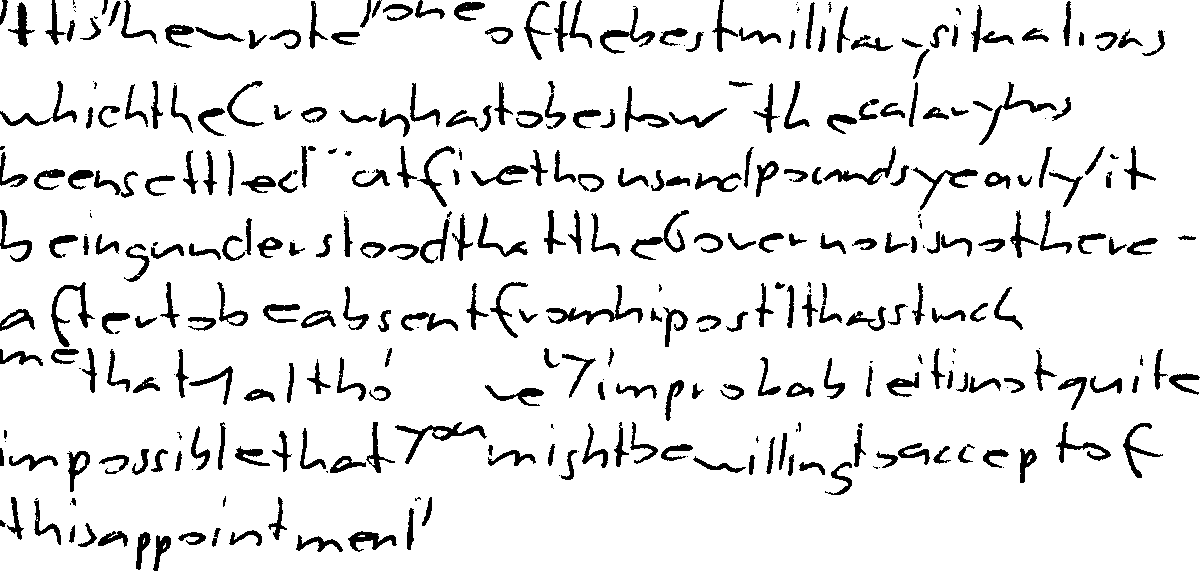 "It is" he wrote "one of the best military situations
which the Crown has to bestow - the salary has
been settled ... at five thousand pounds yearly, it
being understood that the Governor is not here-
after to be absent from his post. It has struck
me that, altho' ve'y improbable it is not quite
impossible that you might be willing to accept of
this appointment"